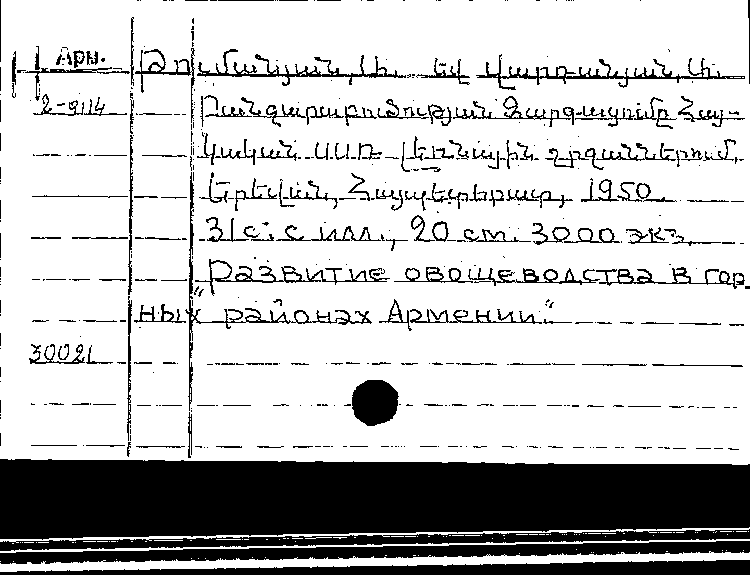 Арм.
Թումանյան, Ս. եվ Վարդանյան, Ս.
2-9114
Բանջարաբուծության Զարգացումը Հայ-
կական ՍՍՌ լեռնային շրջաններում.
Երեվան, Հայպետհրատ, 1950.
31с. с илл., 20 см. 3000 экз.
"Развитие овощеводства в гор
ных районах Армении."
30021